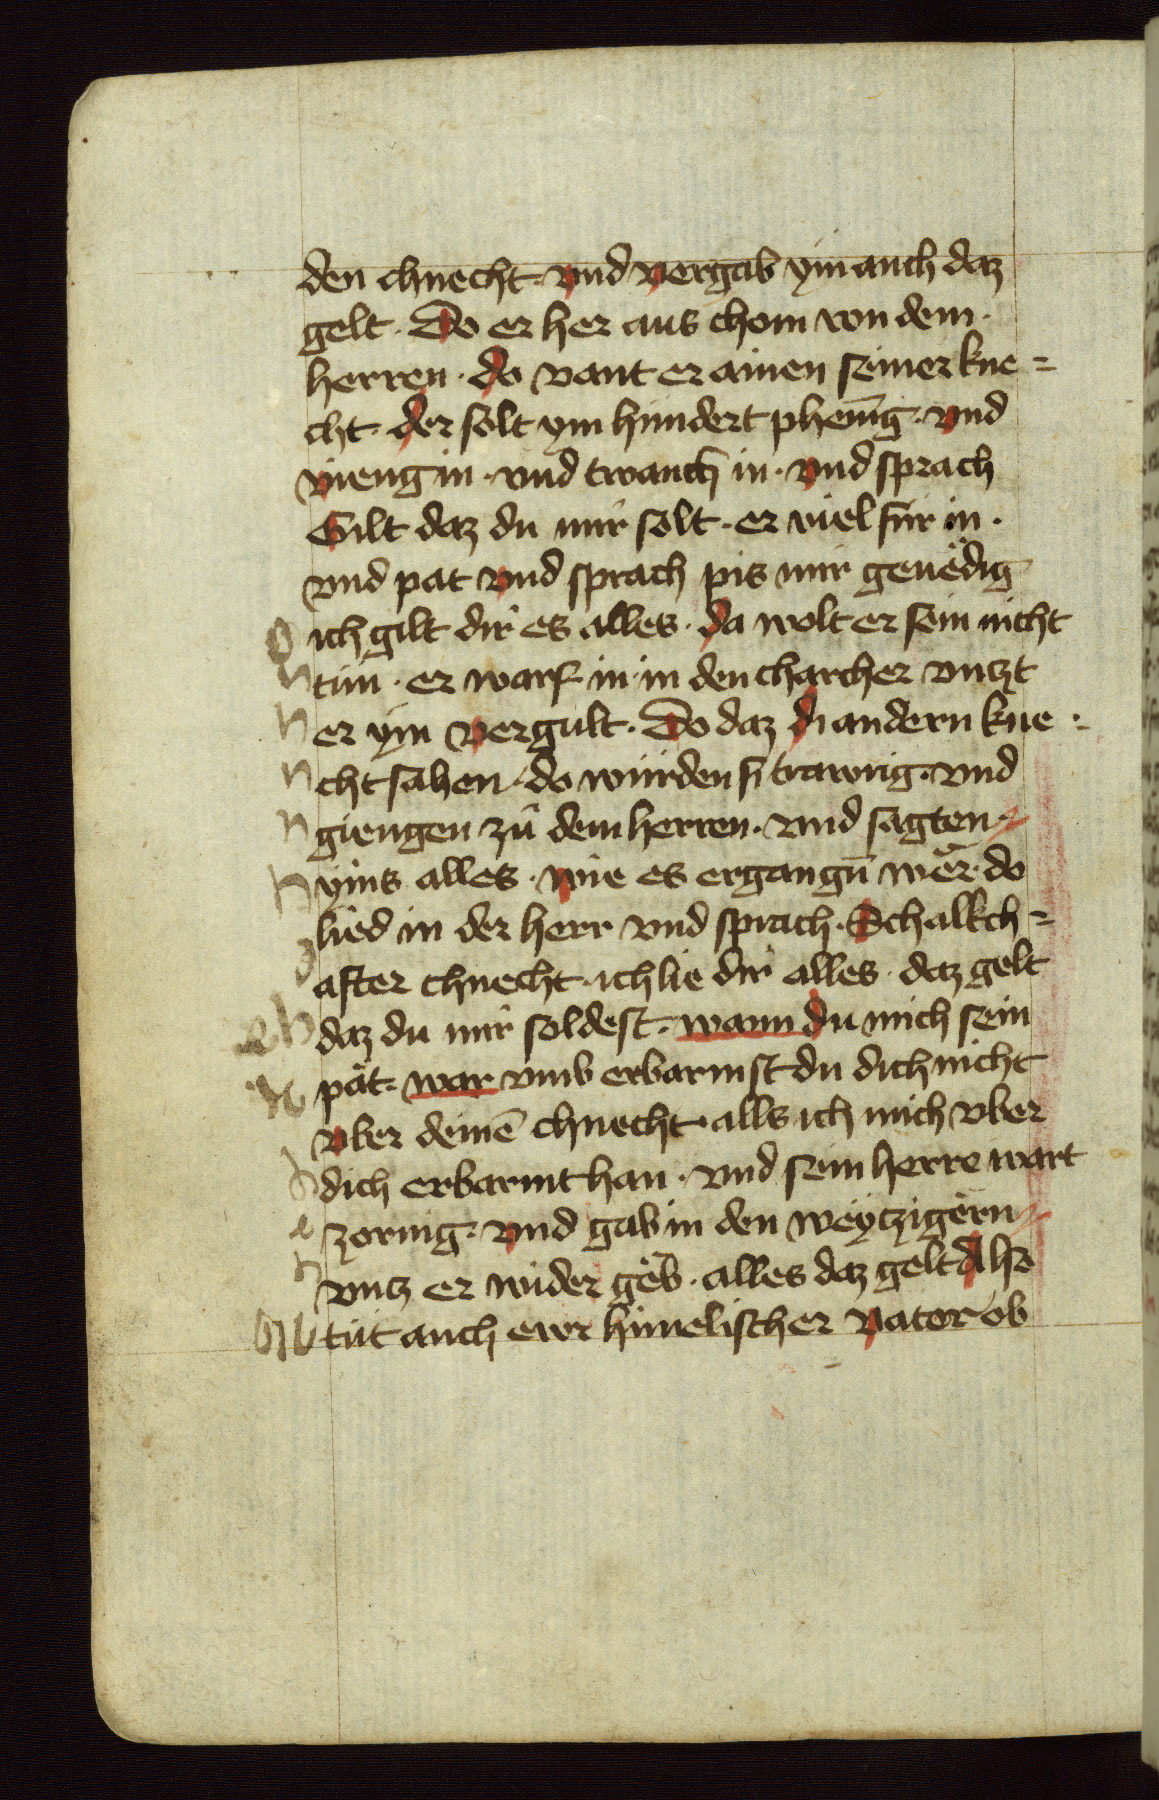 den chnecht · vnd vergab ym auch daz
gelt · Do er her aus chom von dem ·
herren · do vant er ainen seiner kne =
cht · der solt ym hundert phenīg · vnd
vieng in · vnd twanch in · vnd sprach
Gilt daz du mir solt · er viel für in ·
vnd pat vnd sprach pis mir genëdig
ich gilt dir es alles · da wolt er sein nicht
tün · er warf in in den charcher vntzt
er ym vergult · Do daz di andern kne ·
cht sahen · do würden si trawrig · vnd
giengen zü dem herren · vnd sagten
yms alles · wie es ergangn̄ wër · do
lied in der herr vnd sprach · Schalkch =
after chnecht · ich lie dir alles · daz gelt
daz du mir soldest · wann du mich sein
pät · war vmb erbarmst du dich nicht
vber deinē chnecht · alls ich mich vber
dich erbarmt han · vnd sein herre wart
zornig · vnd gab in den weytzigërn
vntz er wider gëb · alles daz gelt Also
tüt auch ewr himelischer vater ob